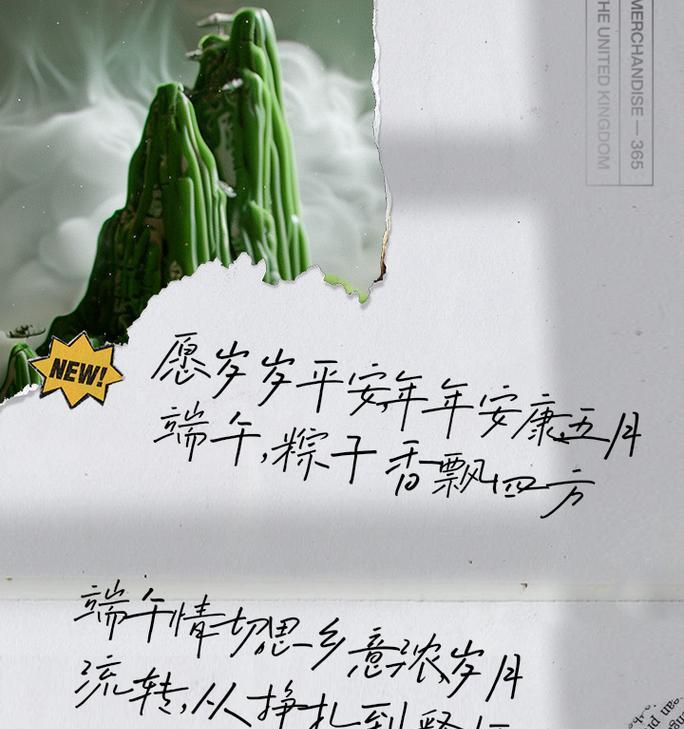 MERCHANDISE — 365
THE UNITED KINGDOM
NEW!
愿岁岁平安,年年安康,五月
端午,粽子香飘四方
端午情切,思乡意浓,岁月
流转,从挣扎到